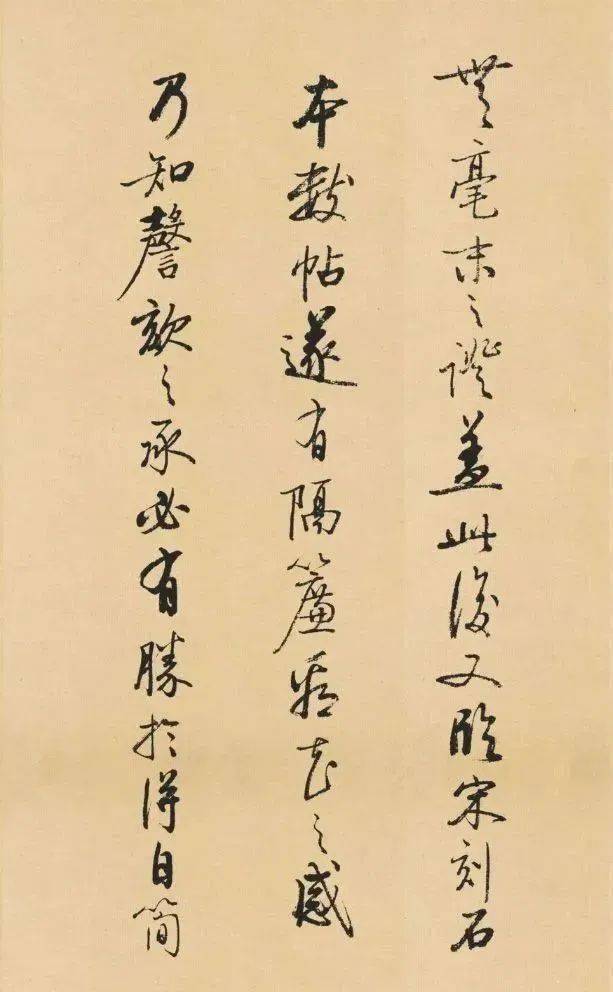 無毫末之證蓋此後又臨宋刻石
本數帖遂有隔簾看花之感
乃知謦欬之承必有勝於得自簡